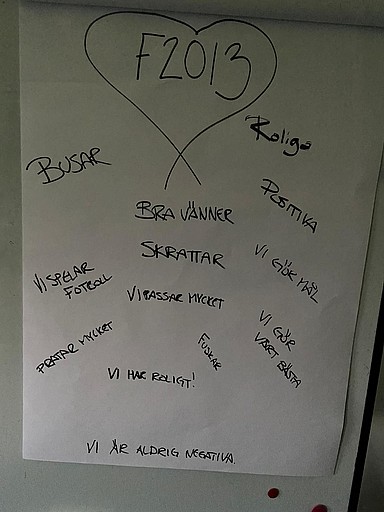 F2013
Roliga
BUSAR
POSITIVA
BRA VÄNNER
SKRATTAR
VI GÖR MÅL
VI SPELAR
FOTBOLL
VI PASSAR MYCKET
VI GÖR
VÅRT BÄSTA
PRATAR MYCKET
FUSKAR
VI HAR ROLIGT!
VI ÄR ALDRIG NEGATIVA.